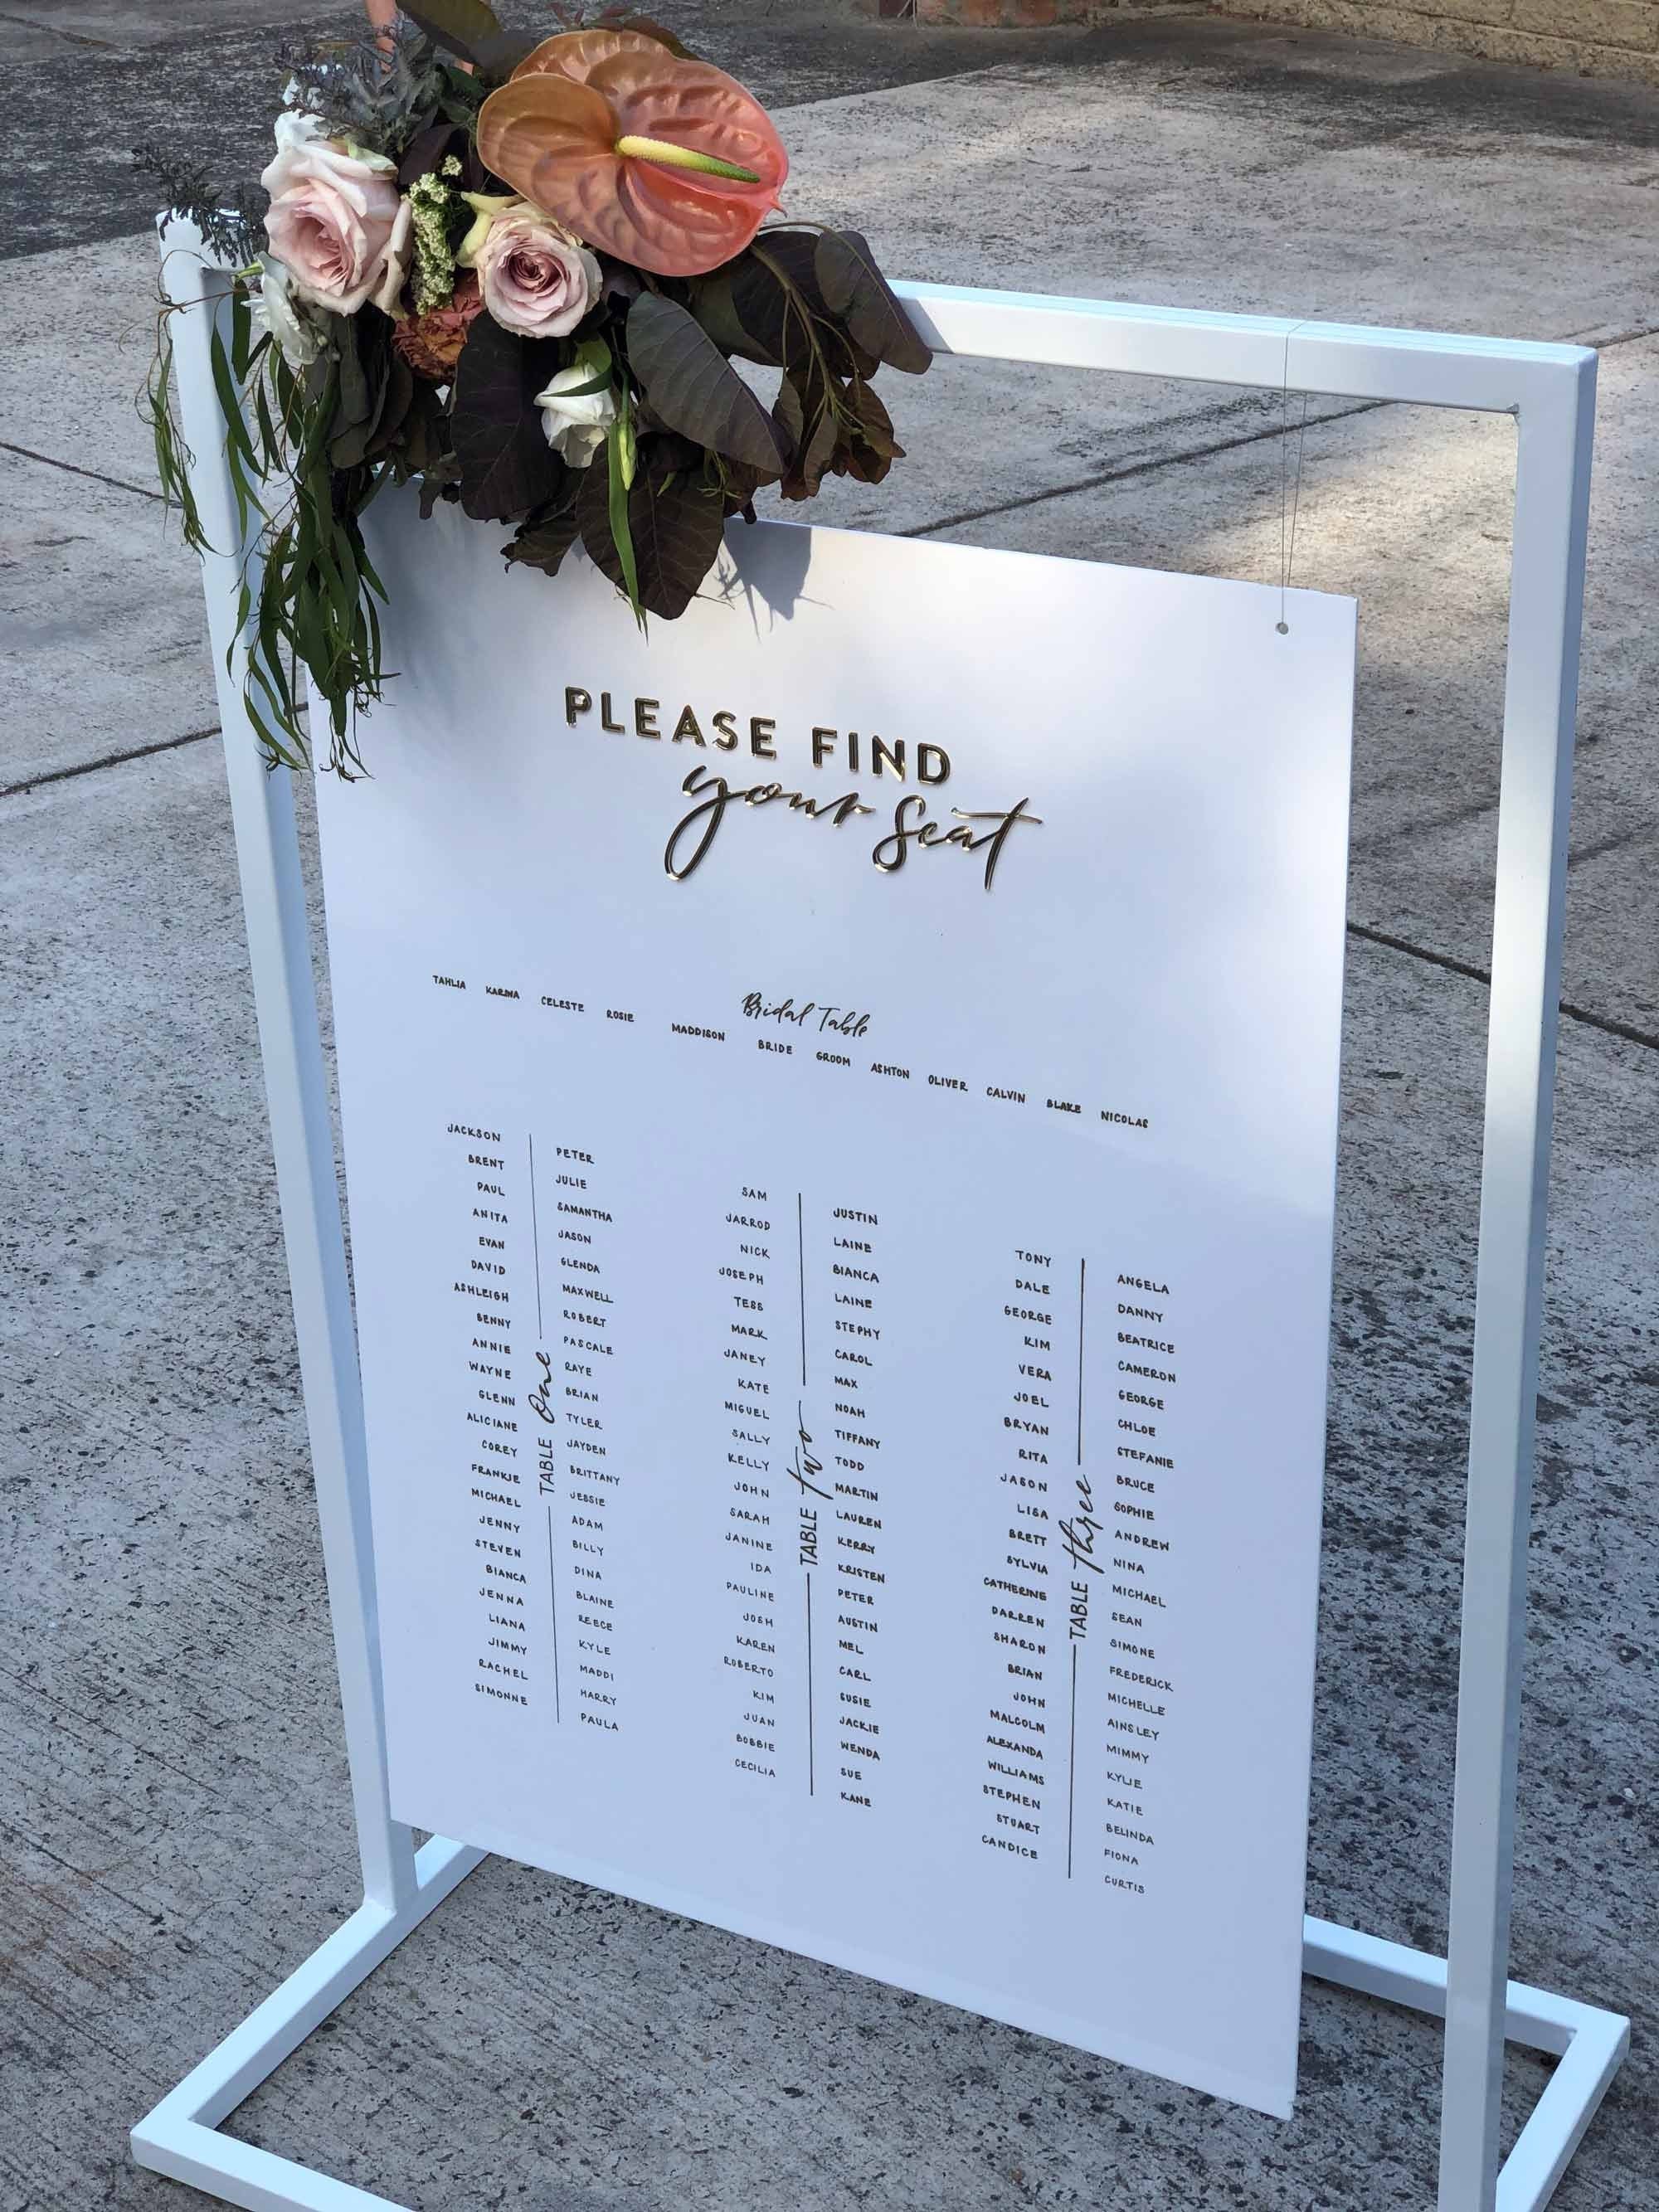 PLEASE FIND
your seat
Bridal Table
TAHLIA KARINA CELESTE ROSIE MADDISON BRIDE GROOM ASHTON OLIVER CALVIN BLAKE NICOLAS
TABLE one
JACKSON
BRENT
PAUL
ANITA
EVAN
DAVID
ASHLEIGH
BENNY
ANNIE
WAYNE
GLENN
ALICIANE
COREY
FRANKIE
MICHAEL
JENNY
STEVEN
BIANCA
JENNA
LIANA
JIMMY
RACHEL
SIMONNE
PETER
JULIE
SAMANTHA
JASON
GLENDA
MAXWELL
ROBERT
PASCALE
RAYE
BRIAN
TYLER
JAYDEN
BRITTANY
JESSIE
ADAM
BILLY
DINA
BLAINE
REECE
KYLE
MADDI
HARRY
PAULA
TABLE two
SAM
JARROD
NICK
JOSEPH
TESS
MARK
JANEY
KATE
MIGUEL
SALLY
KELLY
JOHN
SARAH
JANINE
IDA
PAULINE
JOSH
KAREN
ROBERTO
KIM
JUAN
BOBBIE
CECILIA
JUSTIN
LAINE
BIANCA
LAINE
STEPHY
CAROL
MAX
NOAH
TIFFANY
TODD
MARTIN
LAUREN
KERRY
KRISTEN
PETER
AUSTIN
MEL
CARL
SUSIE
JACKIE
WENDA
SUE
KANE
TABLE three
TONY
DALE
GEORGE
KIM
VERA
JOEL
BRYAN
RITA
JASON
LISA
BRETT
SYLVIA
CATHERINE
DARREN
SHARON
BRIAN
JOHN
MALCOLM
ALEXANDA
WILLIAMS
STEPHEN
STUART
CANDICE
ANGELA
DANNY
BEATRICE
CAMERON
GEORGE
CHLOE
STEFANIE
BRUCE
SOPHIE
ANDREW
NINA
MICHAEL
SEAN
SIMONE
FREDERICK
MICHELLE
AINSLEY
MIMMY
KYLIE
KATIE
BELINDA
FIONA
CURTIS